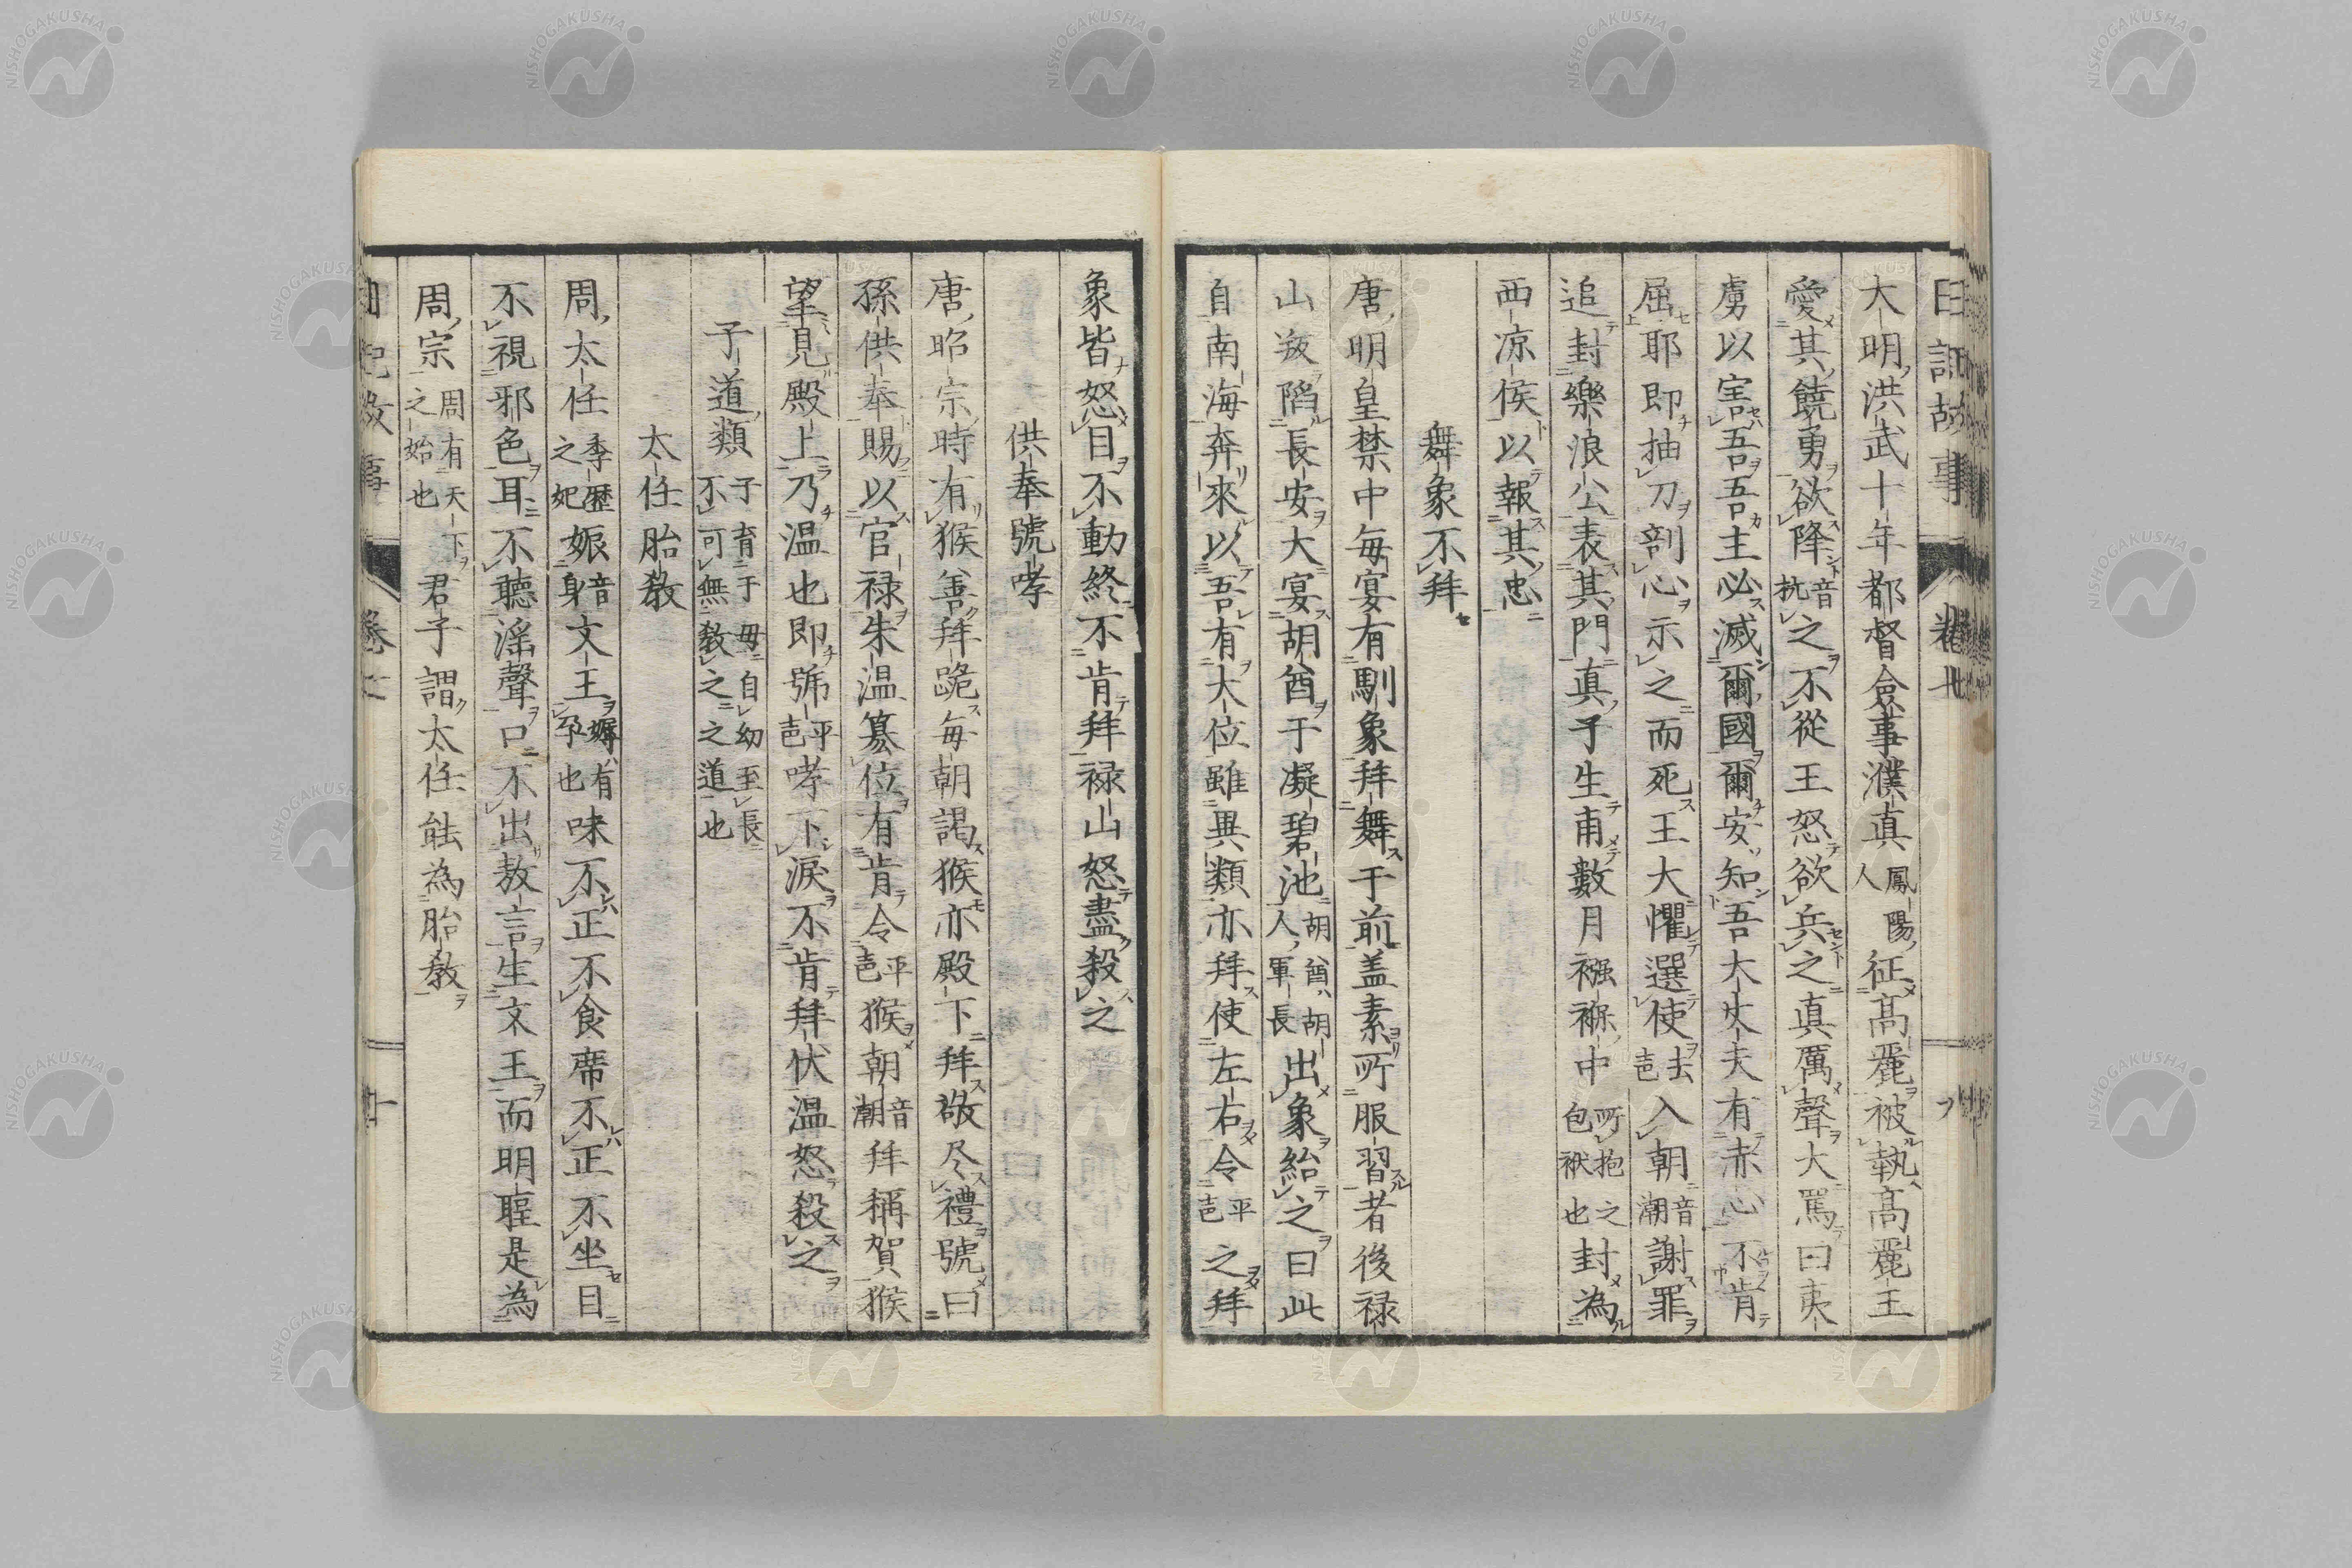 日記故事 卷七
大明洪武十年都督僉事濮真鳳陽人征高麗被執高麗王
愛其饒勇欲降音杭之不從王怒欲兵之真厲聲大罵曰夷
虜以害吾吾主必滅爾國爾安知吾大丈夫有赤心不肯
屈耶即抽刀剖心示之而死王大懼選使去声入朝音潮謝罪
追封樂浪公表其門真子生甫數月襁褓中所抱之包袱也封為
西凉侯以報其忠
舞象不拜
唐明皇禁中每宴有馴象拜舞于前盖素所服習者後禄
山叛陷長安大宴胡酋于凝碧池胡酋胡人軍長出象紿之曰此
自南海奔來以吾有大位雖異類亦拜使左右令平声之拜
象皆怒目不動終不肯拜禄山怒盡殺之
供奉號哮
唐昭宗時有猴善拜跪每朝謁猴亦殿下拜敬尽禮號曰
孫供奉賜以官禄朱温簒位有肯令平声猴朝音潮拜稱賀猴
望見殿上乃温也即號平声哮下淚不肯拜伏温怒殺之
子道類子育于母自幼至長不可無敎之之道也
太任胎敎
周太任季歴之妃娠音身文王娠有孕也味不正不食席不正不坐目
不視邪色耳不聽淫聲口不出敖言生文王而明聖是為
周宗周有天下之始也君子謂太任能為胎敎
日記故事 卷七